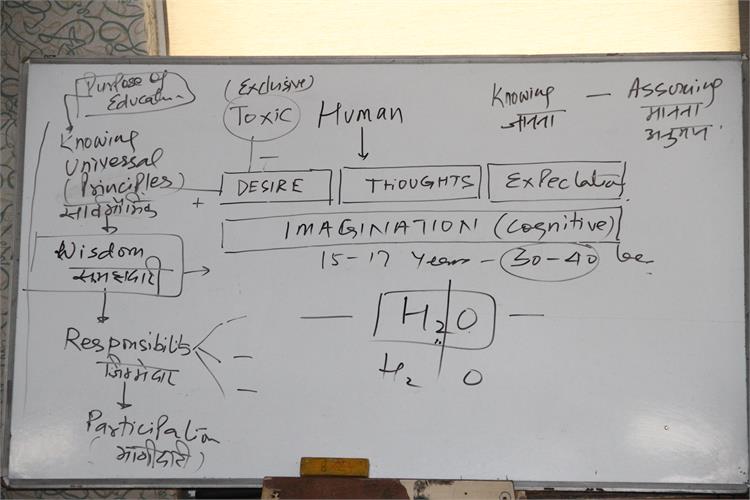 Purpose of
Education
Knowing
Universal
(Principles)
सार्वभौमिक
Wisdom
समझदारी
Responsibility
जिम्मेदार
Participation
(भागीदारी)
(Exclusive)
Toxic
Human
Knowing — Assuming
जानना मानना
+ DESIRE THOUGHTS Expectation
IMAGINATION (Cognitive)
15-17 Years - 30-40
— H₂O —
H₂ O